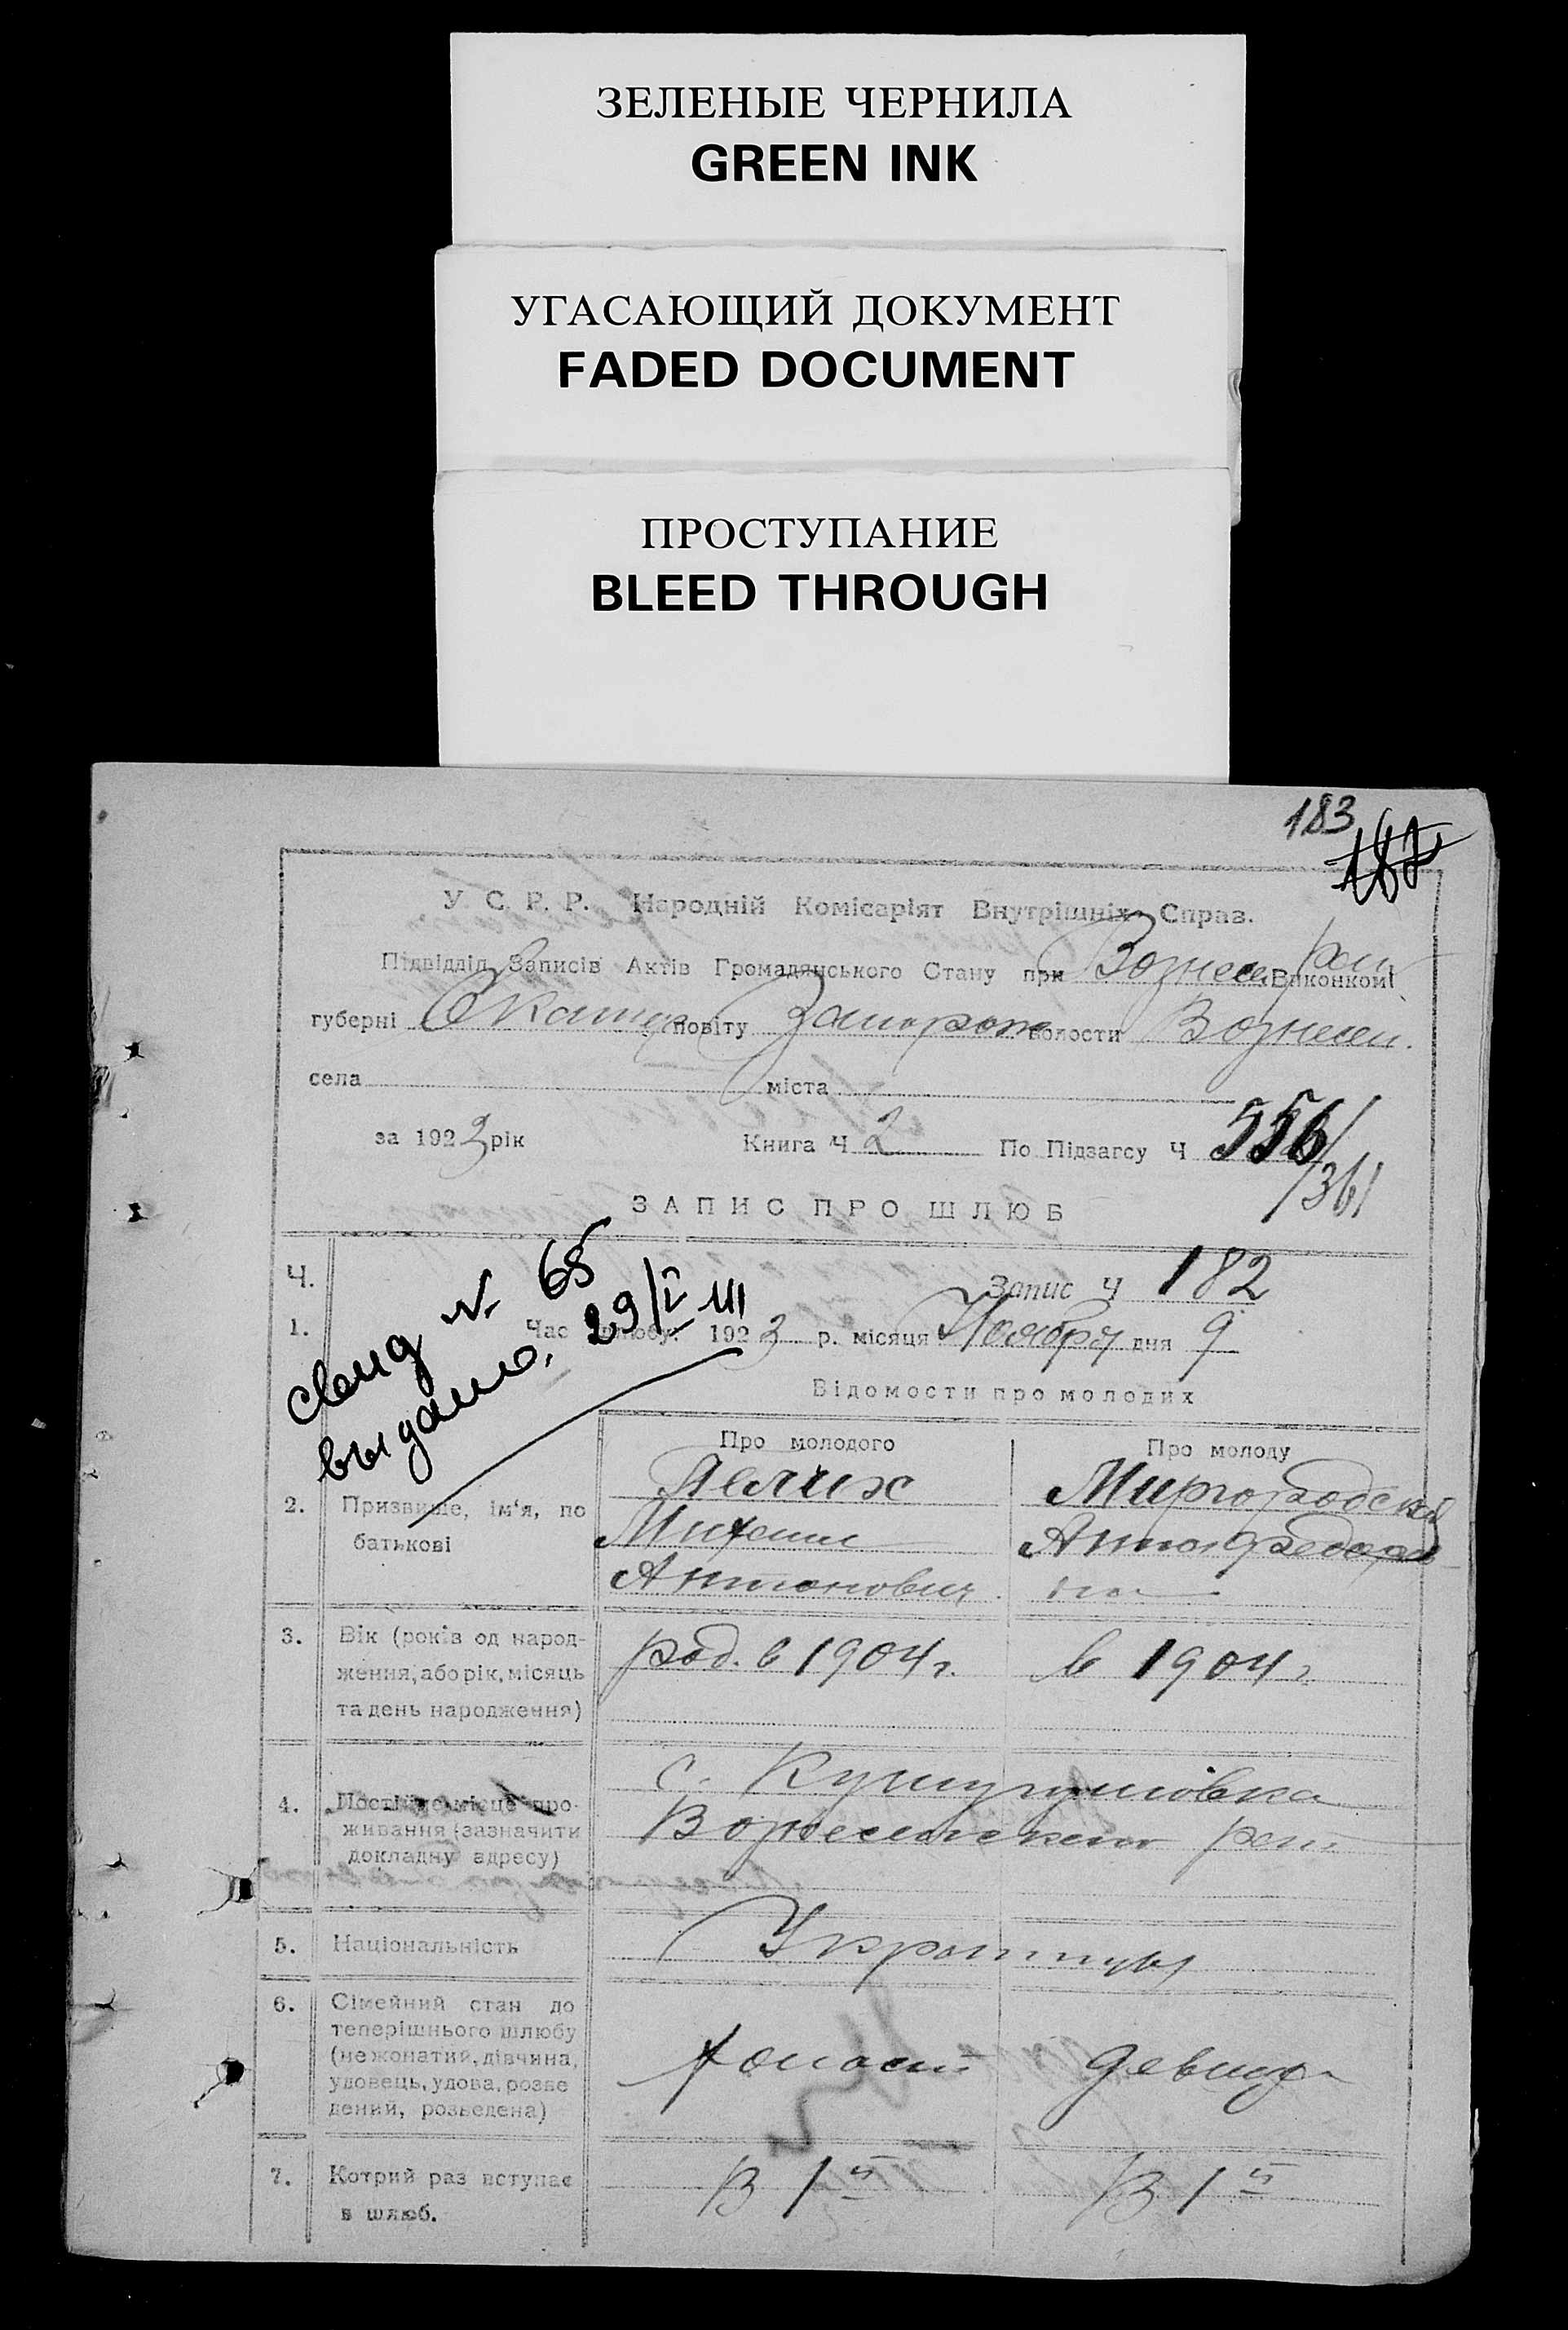 ЗЕЛЕНЫЕ ЧЕРНИЛА
GREEN INK
УГАСАЮЩИЙ ДОКУМЕНТ
FADED DOCUMENT
ПРОСТУПАНИЕ
BLEED THROUGH
183
У. С. Р. Р. Народній Комісаріят Внутрішніх Справ.
Підвідділ Записів Актів Громадянського Стану при Вознесен Рай Виконкомі
губерні Екатер повіту Запорож волости Вознесен.
села міста
за 1923 рік Книга Ч 2 По Підзагсу Ч 556/361
ЗАПИС ПРО ШЛЮБ
Ч. Запис Ч 182
1. Час шлюбу: 1923 р. місяця Ноября дня 9
№ 65
выдано, 29/
Відомости про молодих
Про молодого Про молоду
2. Призвище, ім'я, по батькові
Михаил
Антонович
Миргородская
Анна Федоров
на
3. Вік (років од народ-
ження, або рік, місяць
та день народження)
род. в 1904 г. в 1904 г.
4. Постійне місце про-
живання (зазначити
докладну адресу)
с. Кушугумовка
Вознесенского рай
5. Національність
Украинцы
6. Сімейний стан до
теперішнього шлюбу
(не жонатий, дівчина,
удовець, удова, розве
дений, розведена)
холост девица
7. Котрий раз вступає
в шлюб.
В 1й В 1й